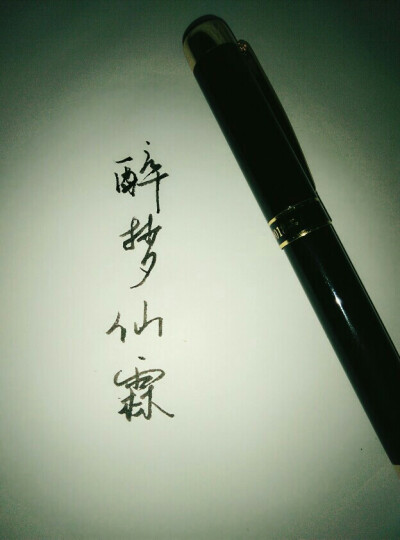 醉梦仙霖